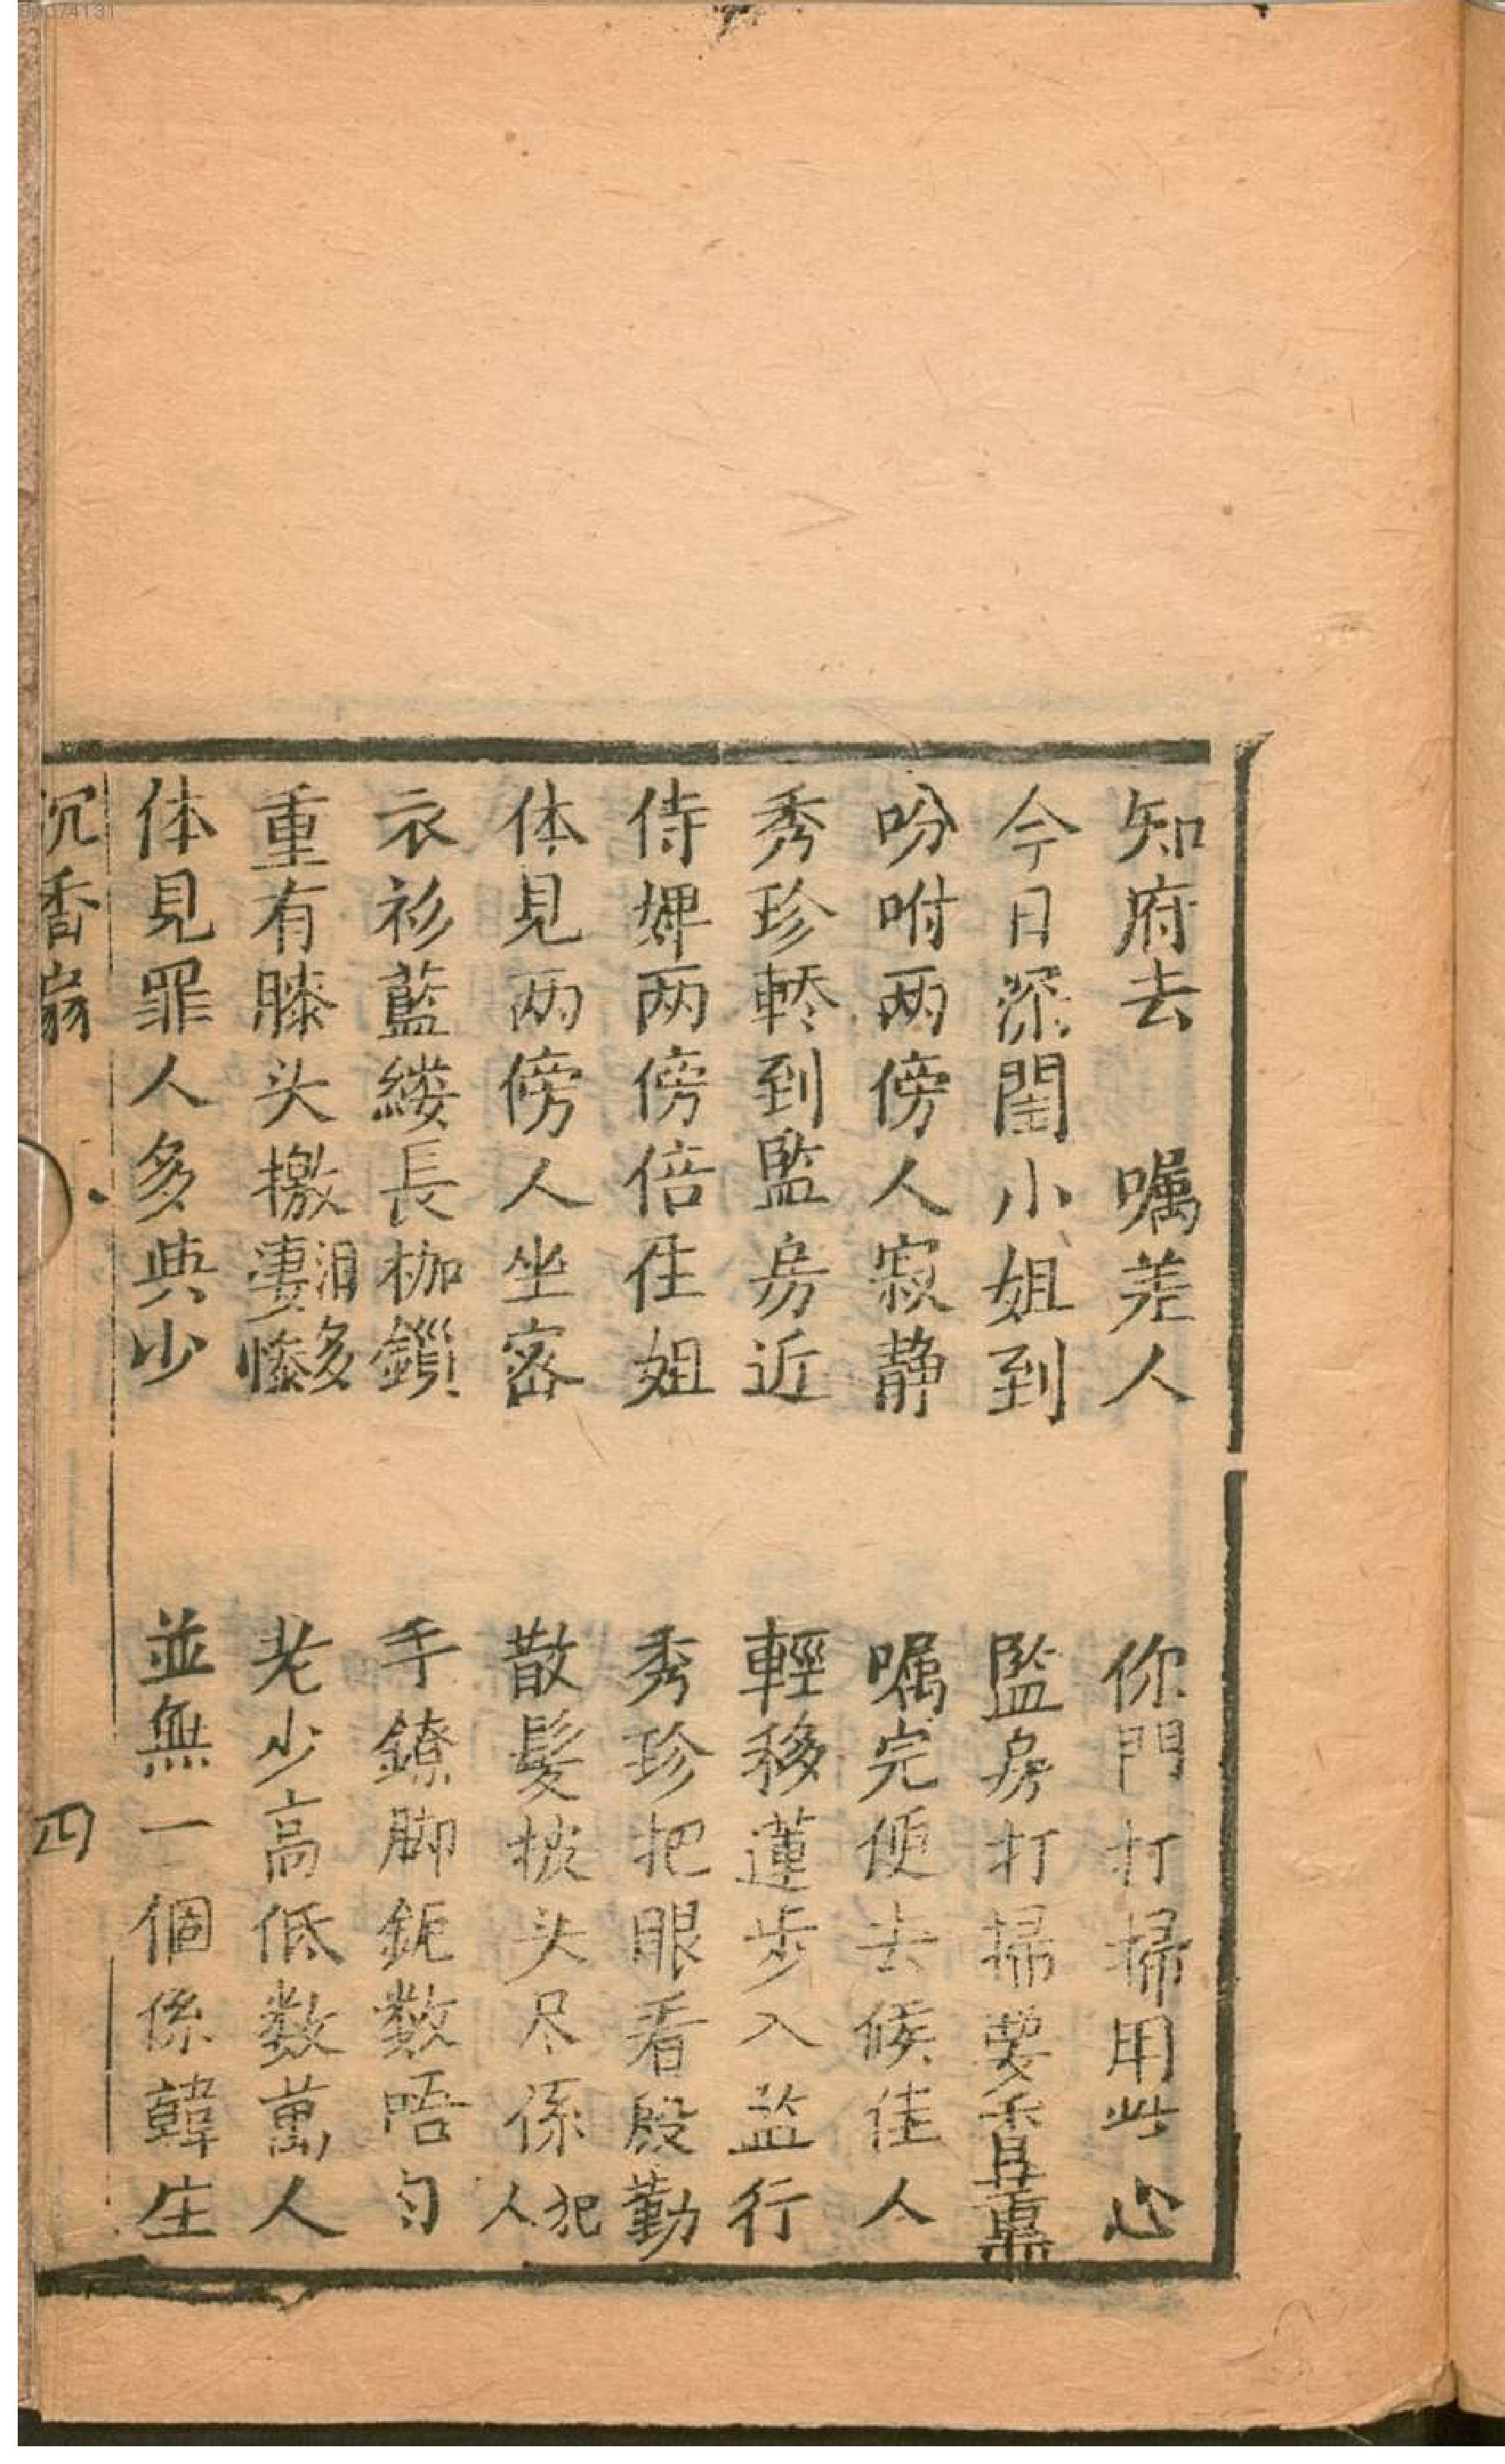 知府去 嘱差人 你門打掃用些心
今日深閨小姐到 監房打掃要香薰
吩咐两傍人寂静 嘱完便去候佳人
秀珍轎到監房近 輕移蓮步入监行
侍婢两傍倍住姐 秀珍把眼看殷勤
体見两傍人坐密 散髮披头尽係犯人
衣衫藍縷長枷鎖 手鐐脚鈪数唔匀
重有膝头撽泪多妻慘 老少高低数萬人
体見罪人多共少 並無一個係韓生
沉香扇 四